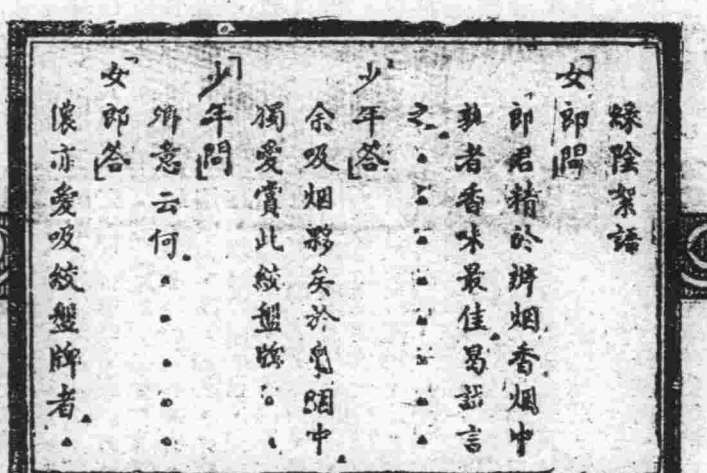 綠陰絮語
「女郎問」
郎君精於辨烟香烟中
孰者香味最佳曷試言
之
「少年答」
余吸烟夥矣於烟中
獨愛賞此絞盤牌
「少年問」
卿意云何
「女郎答」
儂亦愛吸絞盤牌者